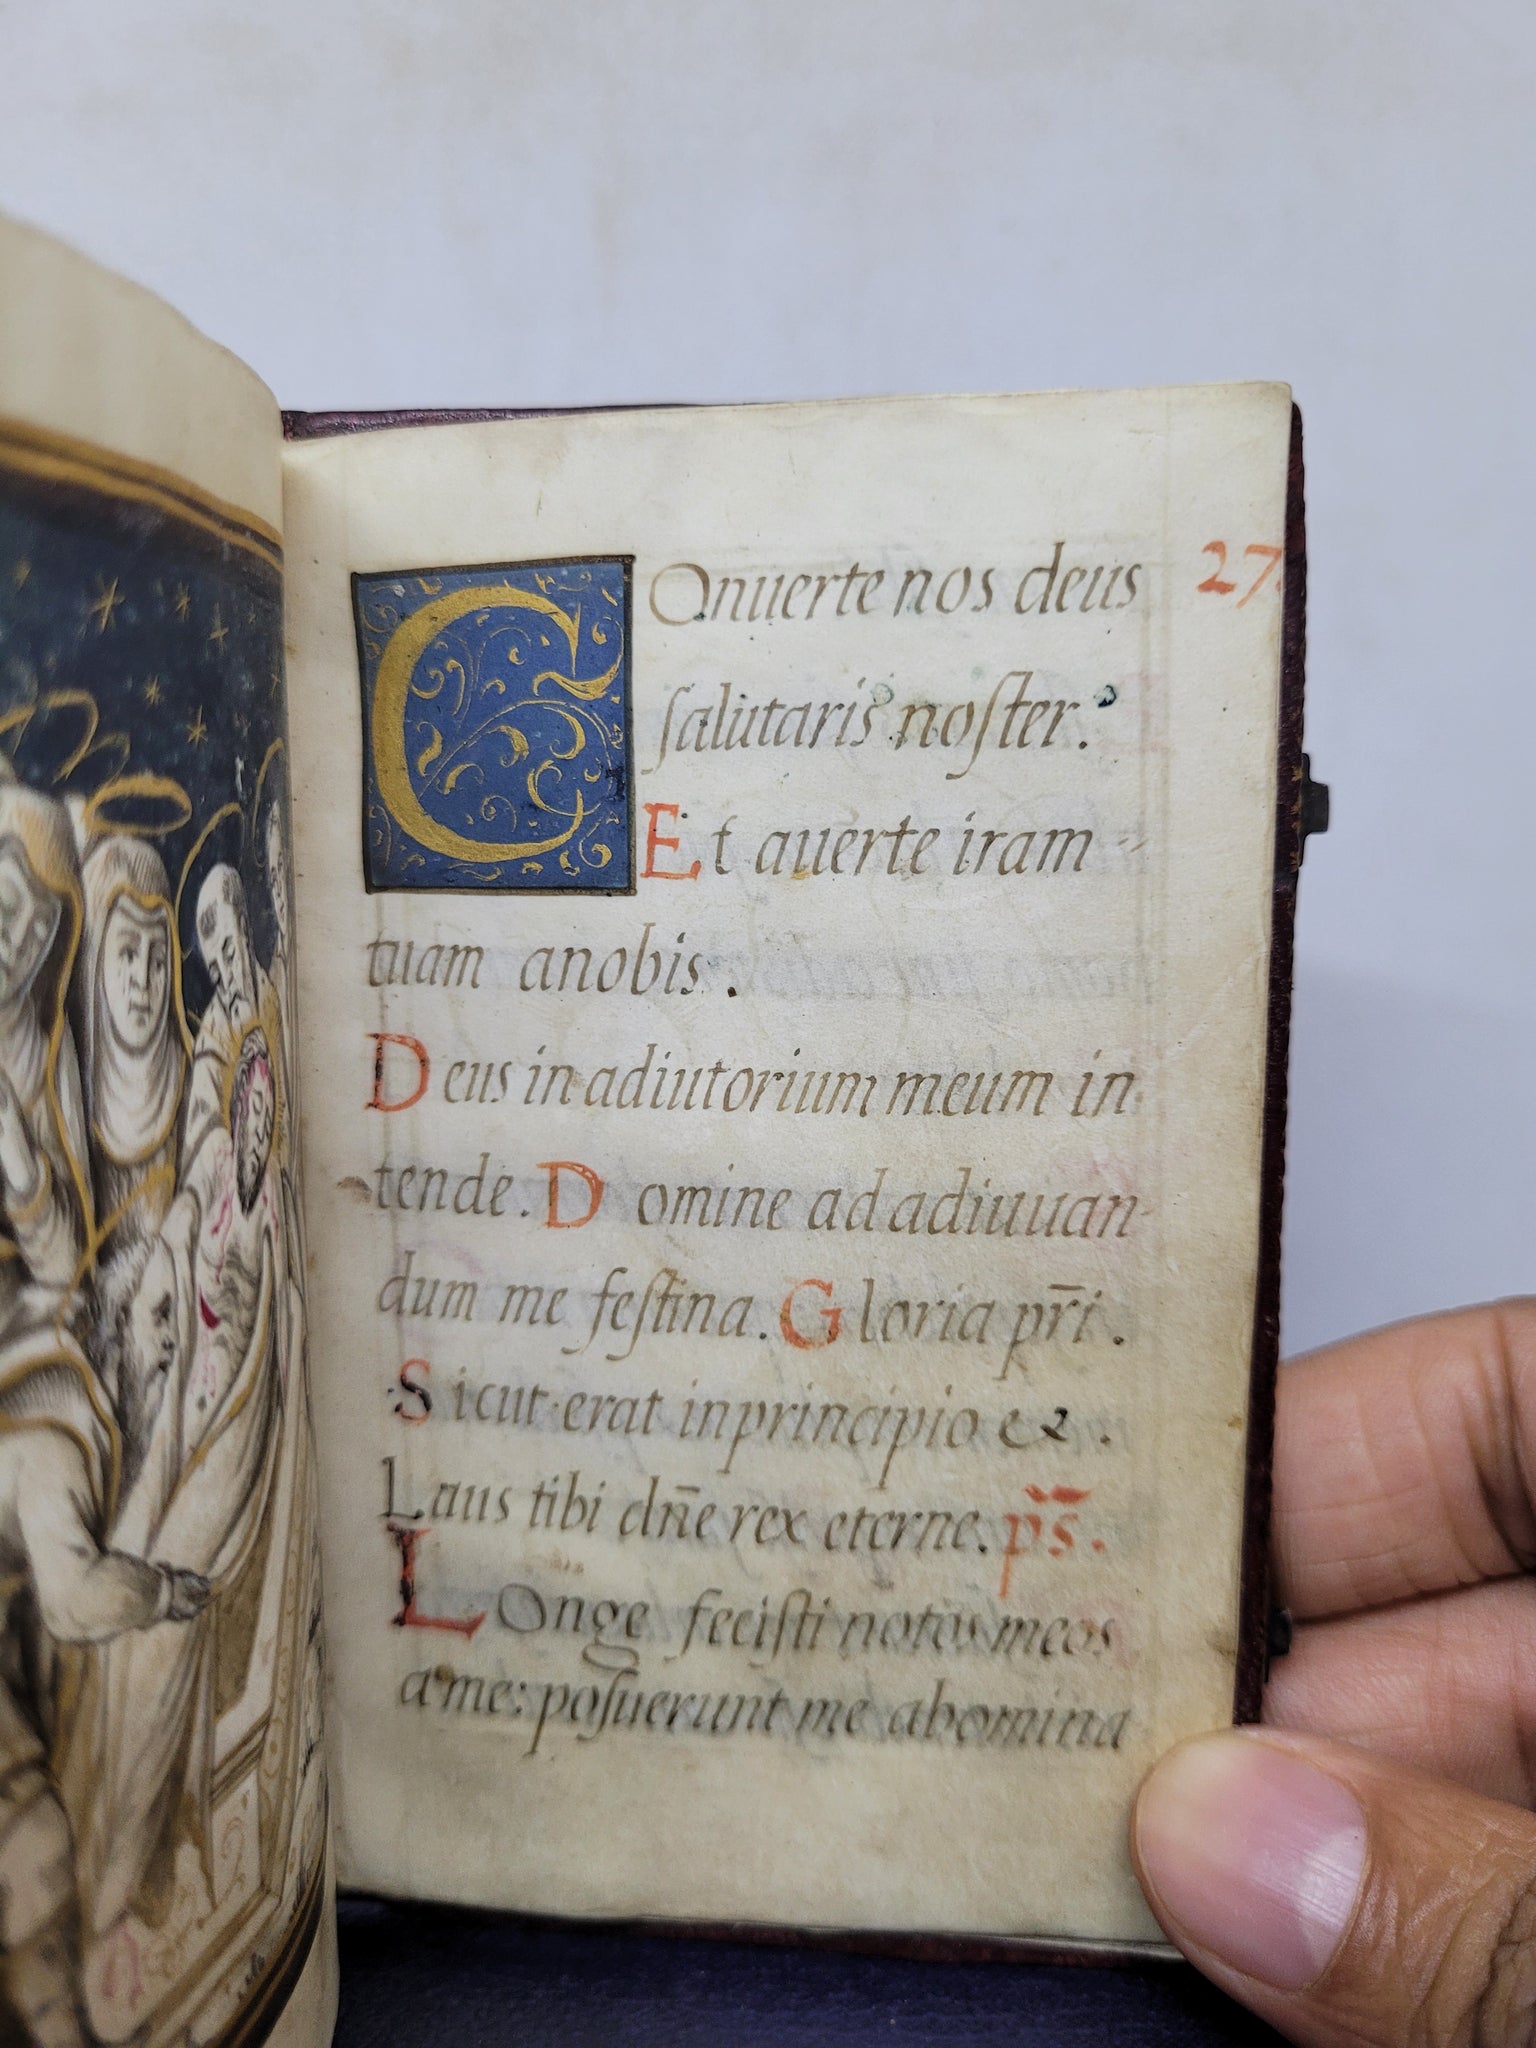 COnuerte nos deus
27.
ſalutaris noſter.
Et auerte iram
tuam anobis.
Deus in adiutorium meum in
tende. Domine ad adiuuan
dum me feſtina. Gloria pr̄i.
Sicut erat in principio &.
Laus tibi dn̄e rex eterne. ps̄.
LOnge feciſti notos meos
a me: poſuerunt me abomina